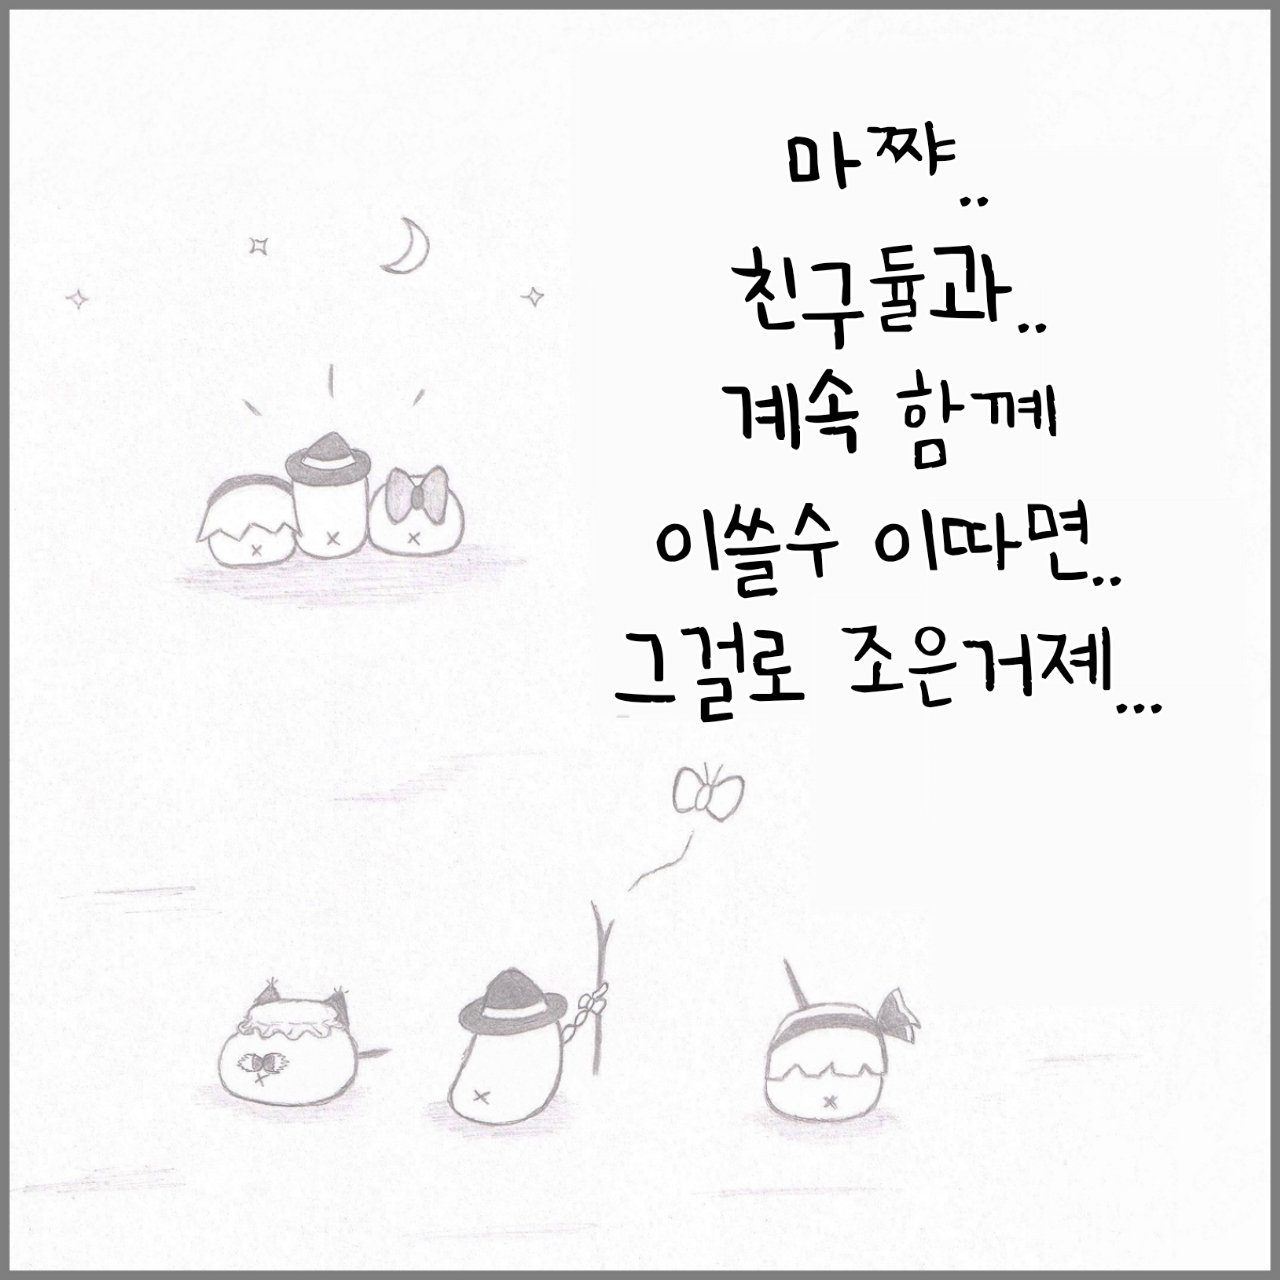 마쨔..
친구듈과..
계속 함꼐
이쓸수 이따면..
그걸로 조은거졔...